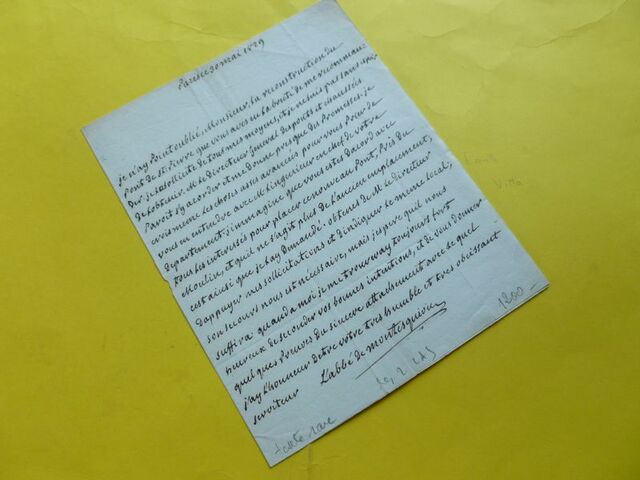 Paris ce 30 mai 1829
je n'ay point oublié, Monsieur, la reconstruction du
Pont de st. Pierre que vous avés eu la bonté de me recomman
der je sollicite de tous mes moyens, et je ne suis pas sans espoir
de l'obtenir. M. le directeur général des ponts et chaussées
Paroit s'y acorder et me donne presque des promesses. je
crois même les choses assés avancées pour vous prier de
vous en entendre avec M. l'ingénieur en chef de votre
département. j'immagine que vous etes d'acord avec
tous les interéssés pour placer ce nouveau pont, Près du
Moulin, et qu'il ne s'agit plus de l'ancien emplacement,
c'est ainsi que je l'ay demandé. obtenés de M. le directeur
d'appuyer mes sollicitations et d'indiquer le même local,
son secours nous est nécessaire, mais j'espere qu'il nous
suffira. quand a moi je me trouveray toujours fort
heureux de seconder vos bonnes intentions, et de vous donner
quelques preuves du sincere attachement avec le quel
j'ay l'honneur d'etre votre tres humble et tres obeissant
serviteur L'abbé de montesquiou
1200 -
2 LAS
rare